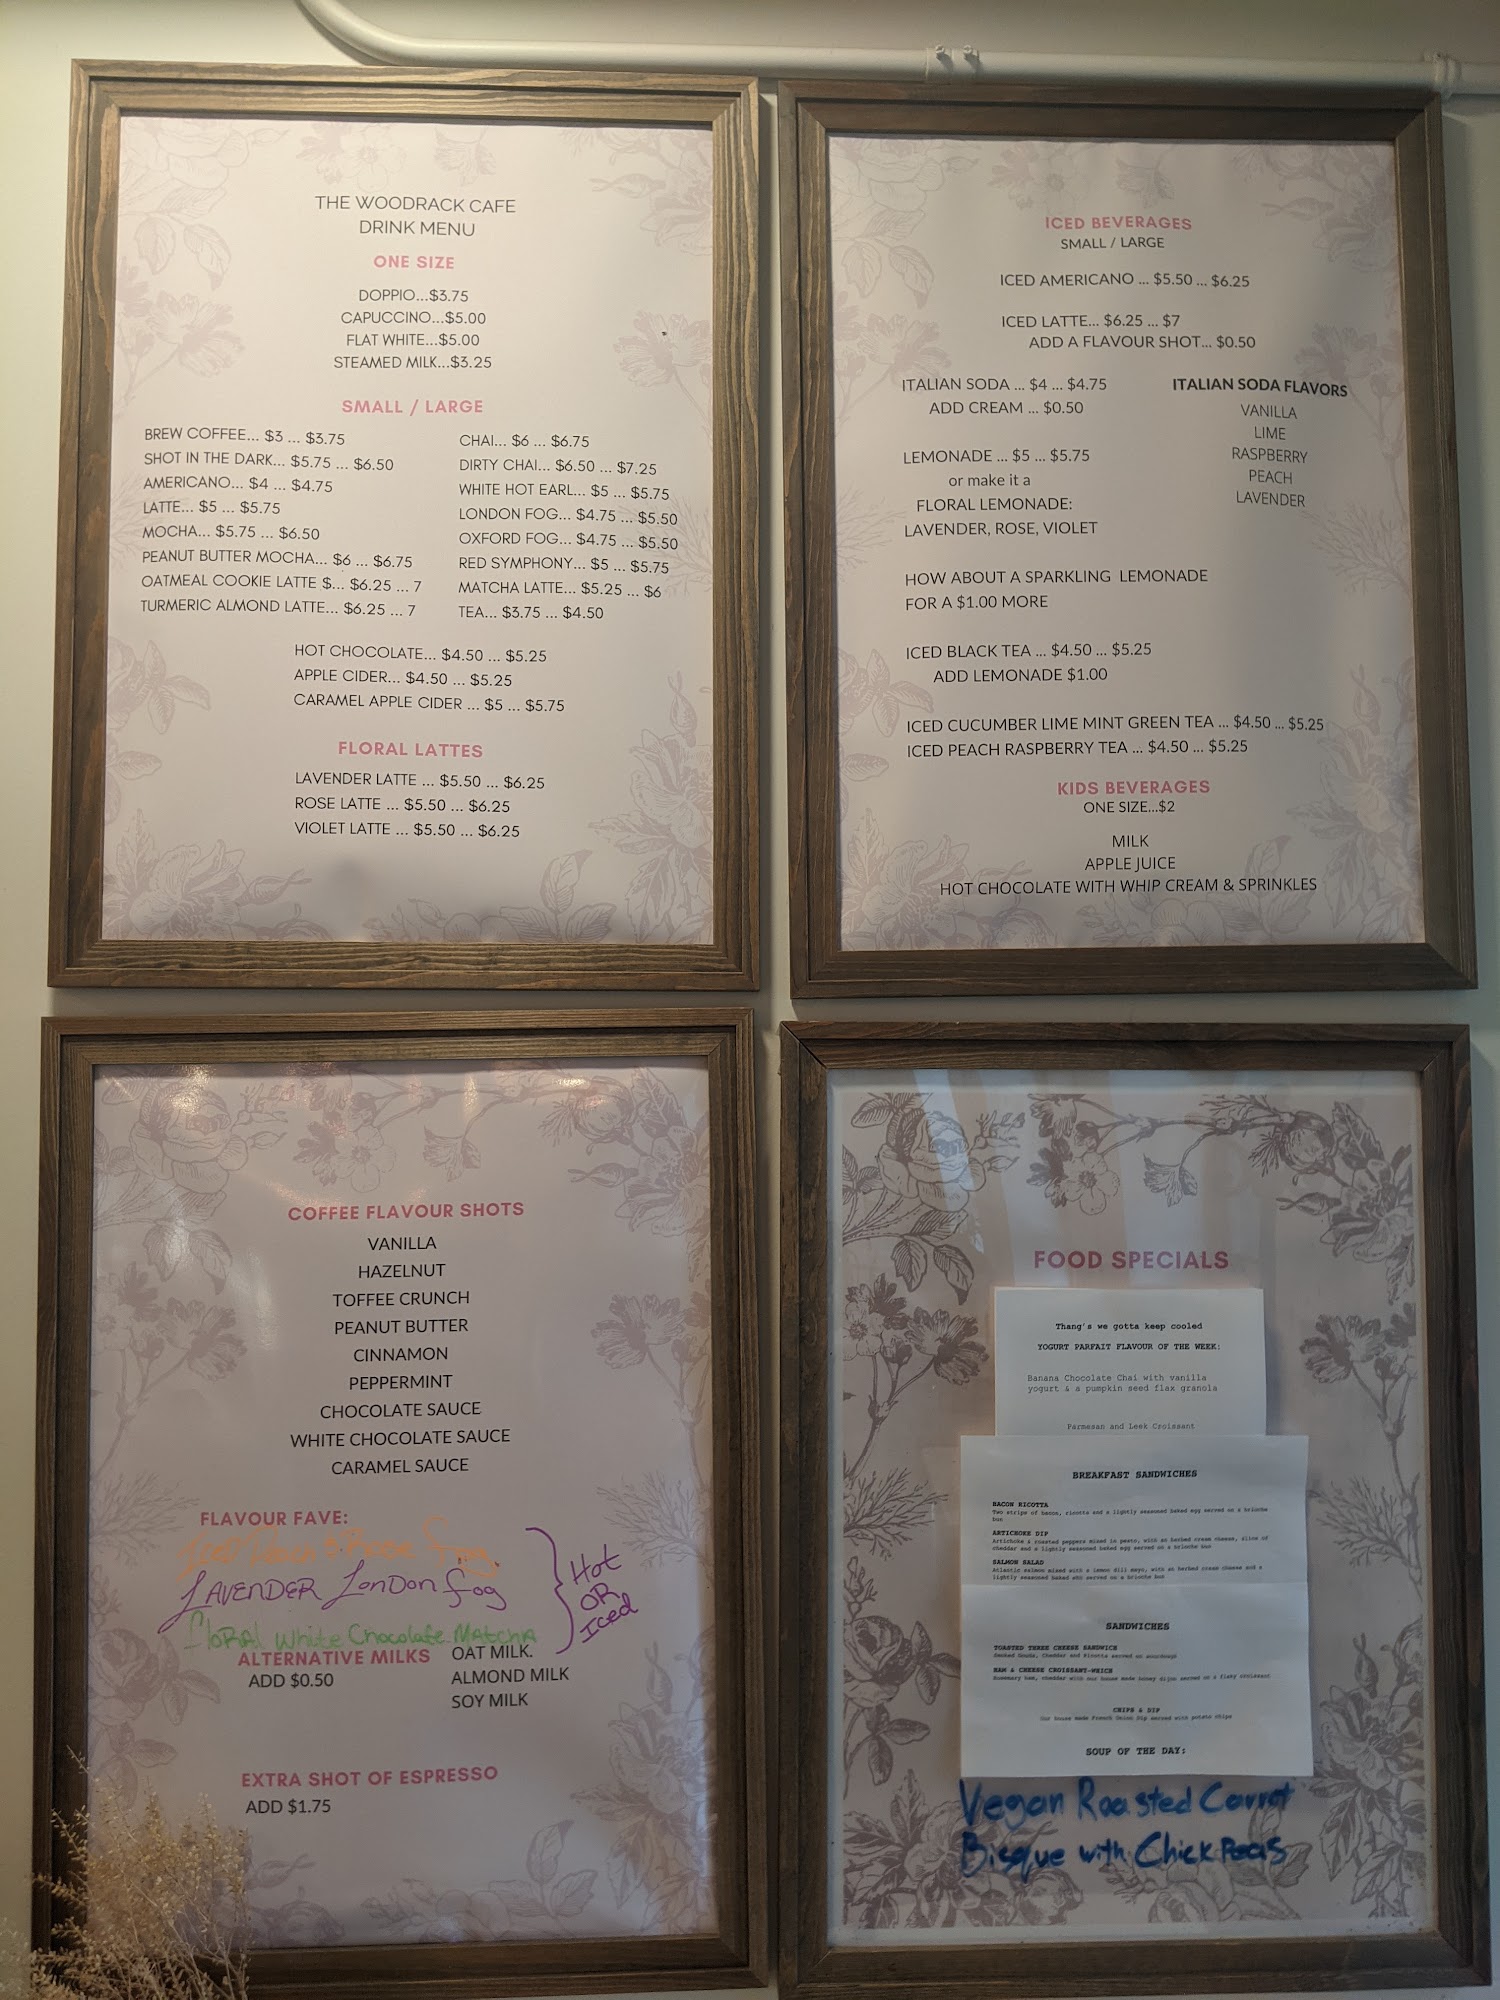 THE WOODRACK CAFE
DRINK MENU
ONE SIZE
DOPPIO...$3.75
CAPUCCINO...$5.00
FLAT WHITE...$5.00
STEAMED MILK...$3.25
SMALL / LARGE
BREW COFFEE... $3 ... $3.75
SHOT IN THE DARK... $5.75 ... $6.50
AMERICANO... $4 ... $4.75
LATTE... $5 ... $5.75
MOCHA... $5.75 ... $6.50
PEANUT BUTTER MOCHA... $6 ... $6.75
OATMEAL COOKIE LATTE $... $6.25 ... 7
TURMERIC ALMOND LATTE... $6.25 ... 7
CHAI... $6 ... $6.75
DIRTY CHAI... $6.50 ... $7.25
WHITE HOT EARL... $5 ... $5.75
LONDON FOG... $4.75 ... $5.50
OXFORD FOG... $4.75 ... $5.50
RED SYMPHONY... $5 ... $5.75
MATCHA LATTE... $5.25 ... $6
TEA... $3.75 ... $4.50
HOT CHOCOLATE... $4.50 ... $5.25
APPLE CIDER... $4.50 ... $5.25
CARAMEL APPLE CIDER ... $5 ... $5.75
FLORAL LATTES
LAVENDER LATTE ... $5.50 ... $6.25
ROSE LATTE ... $5.50 ... $6.25
VIOLET LATTE ... $5.50 ... $6.25
ICED BEVERAGES
SMALL / LARGE
ICED AMERICANO ... $5.50 ... $6.25
ICED LATTE... $6.25 ... $7
ADD A FLAVOUR SHOT... $0.50
ITALIAN SODA ... $4 ... $4.75
ADD CREAM ... $0.50
LEMONADE ... $5 ... $5.75
or make it a
FLORAL LEMONADE:
LAVENDER, ROSE, VIOLET
ITALIAN SODA FLAVORS
VANILLA
LIME
RASPBERRY
PEACH
LAVENDER
HOW ABOUT A SPARKLING LEMONADE
FOR A $1.00 MORE
ICED BLACK TEA ... $4.50 ... $5.25
ADD LEMONADE $1.00
ICED CUCUMBER LIME MINT GREEN TEA ... $4.50 ... $5.25
ICED PEACH RASPBERRY TEA ... $4.50 ... $5.25
KIDS BEVERAGES
ONE SIZE...$2
MILK
APPLE JUICE
HOT CHOCOLATE WITH WHIP CREAM & SPRINKLES
COFFEE FLAVOUR SHOTS
VANILLA
HAZELNUT
TOFFEE CRUNCH
PEANUT BUTTER
CINNAMON
PEPPERMINT
CHOCOLATE SAUCE
WHITE CHOCOLATE SAUCE
CARAMEL SAUCE
FLAVOUR FAVE:
Rose Fog
LAVENDER LonDon fog
floRAl White Chocolate MAtchA
Hot
OR
Iced
ALTERNATIVE MILKS
ADD $0.50
OAT MILK.
ALMOND MILK
SOY MILK
EXTRA SHOT OF ESPRESSO
ADD $1.75
FOOD SPECIALS
Thang's we gotta keep cooled
YOGURT PARFAIT FLAVOUR OF THE WEEK:
Banana Chocolate Chai with vanilla
yogurt & a pumpkin seed flax granola
Parmesan and Leek Croissant
BREAKFAST SANDWICHES
BACON RICOTTA
Two strips of bacon, ricotta and a lightly seasoned baked egg served on a brioche
bun
ARTICHOKE DIP
Artichoke & roasted peppers mixed in pesto, with an herbed cream cheese, slice of
cheddar and a lightly seasoned baked egg served on a brioche bun
SALMON SALAD
Atlantic salmon mixed with a lemon dill mayo, with an herbed cream cheese and a
lightly seasoned baked egg served on a brioche bun
SANDWICHES
TOASTED THREE CHEESE SANDWICH
Smoked Gouda, Cheddar and Ricotta served on sourdough
HAM & CHEESE CROISSANT-WHICH
Rosemary ham, cheddar with our house made honey dijon served on a flaky croissant
CHIPS & DIP
Our house made French Onion Dip served with potato chips
SOUP OF THE DAY:
Vegan Roasted Carrot
Bisque with Chick Peas